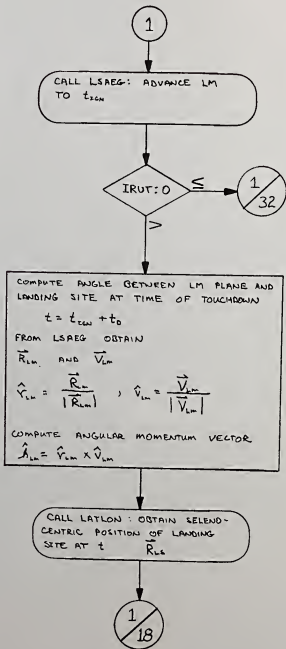 1
CALL LSAEG: ADVANCE LM
TO t_IGN
IRUT: 0
≤
1
32
>
COMPUTE ANGLE BETWEEN LM PLANE AND
LANDING SITE AT TIME OF TOUCHDOWN
t = t_IGN + t_D
FROM LSAEG OBTAIN
R⃗_LM AND V⃗_LM
r̂_LM = R⃗_LM / |R⃗_LM| , v̂_LM = V⃗_LM / |V⃗_LM|
COMPUTE ANGULAR MOMENTUM VECTOR
ĥ_LM = r̂_LM × v̂_LM
CALL LATLON: OBTAIN SELENO-
CENTRIC POSITION OF LANDING
SITE AT t R⃗_LS
1
18